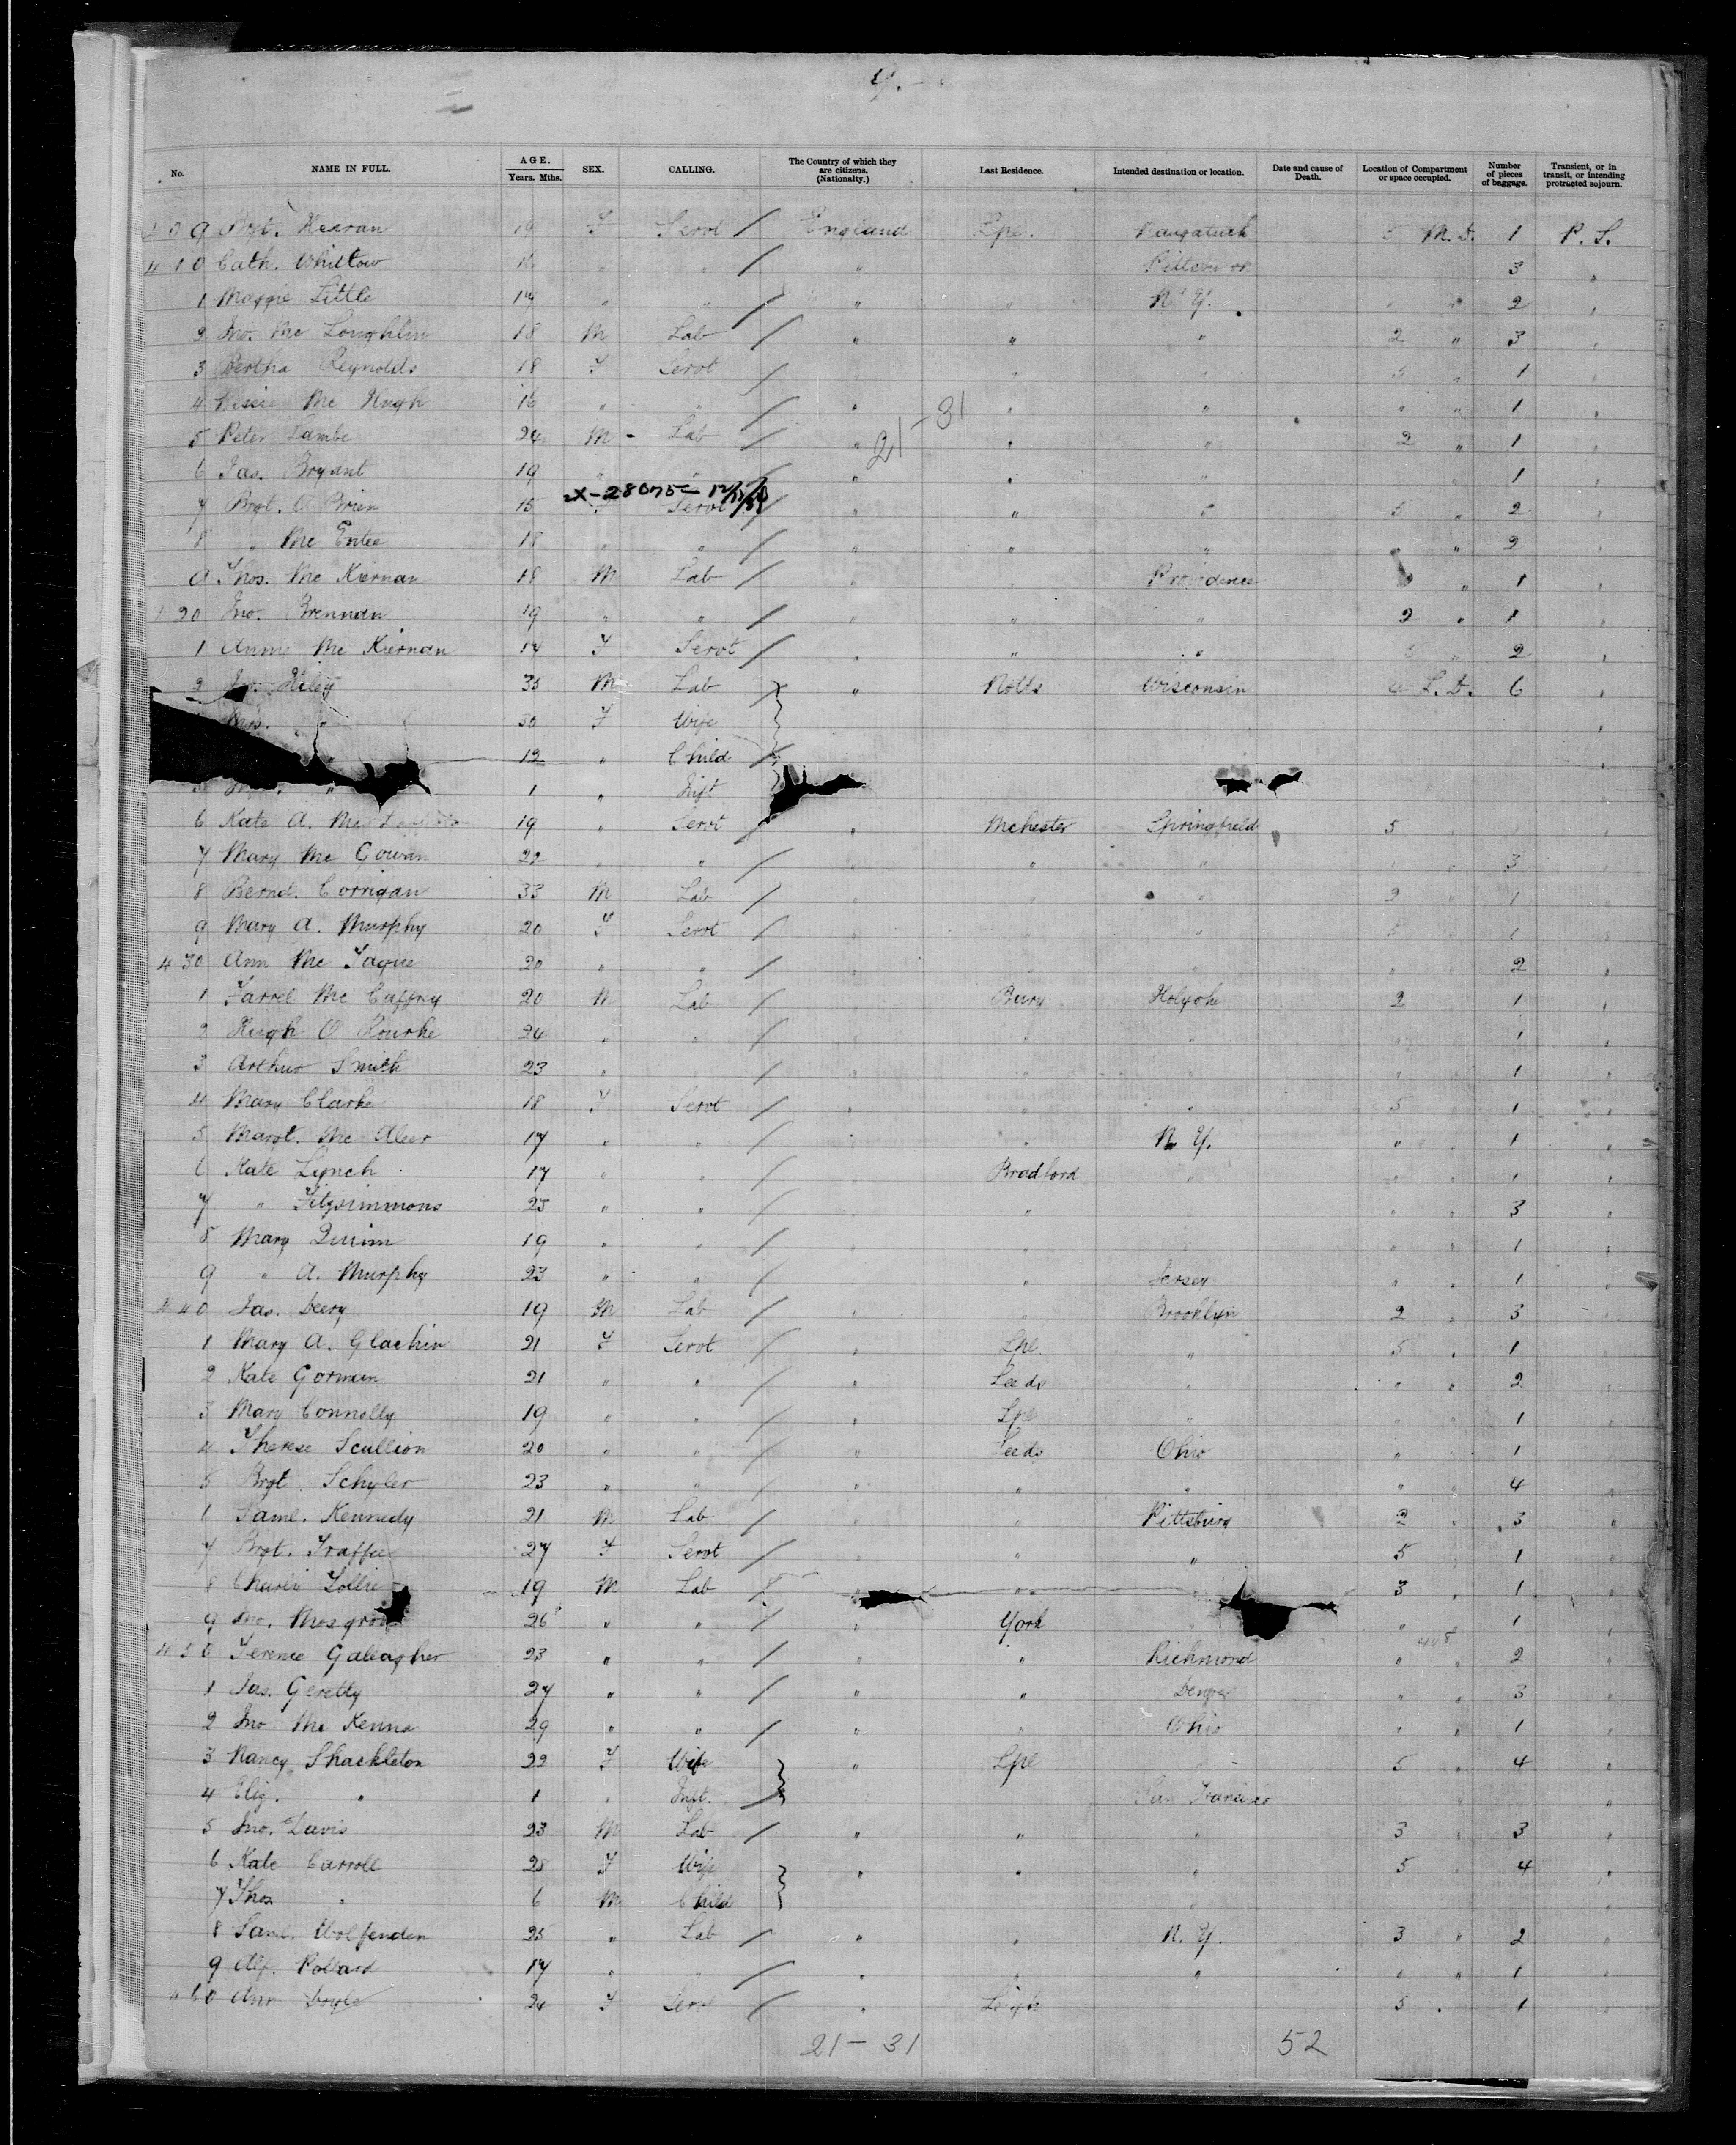 9.-
No. NAME IN FULL. AGE. Years. Mths. SEX. CALLING. The Country of which they are citizens. (Nationalty.) Last Residence. Intended destination or location. Date and cause of Death. Location of Compartment or space occupied. Number of pieces of baggage. Transient, or in transit, or intending protracted sojourn.
409 Brgt. Kearan 19 F Servt / England Lpl. Naugatuck 5 M.D. 1 P.S.
410 Cath. " " / " 3 "
1 Maggie Little 17 " " / " " N.Y. " " 2 "
2 Jno. Mc Loughlin 18 M Lab / " " " 2 " 3 "
3 Bertha Reynolds 18 F Servt / " " " 5 " 1 "
4 Mc Hugh 16 " " / " " " " " 1 "
5 Peter Lambe 24 M - Lab / " " " 2 " 1 "
21-31
6 Jas. Bryant 19 " " / " " " 1 "
X-28075-
7 Brgt. O Brien 15 F Servt / " " " 5 " 2 "
8 " Mc Entee 18 " " / " " " " 2 "
9 Thos. Mc Kiernan 18 M Lab / " Providence " 1 "
420 Jno. Brennan 19 " " / " " " 2 " 1 "
1 Annie Mc Kiernan 14 F Servt / " " " 5 " 2 "
2 Jno. Riley 35 M Lab " Notts Wisconsin 4 L.D. 6 "
Mrs. " 30 F Wife "
12 " Child / "
5 " 1 " Inft
6 Kate A. Mc 19 " Servt / " Mchester Springfield 5
7 Mary Mc Gowan 22 " " / " " 3 "
8 Bernd. Corrigan 33 M Lab / " " " 2 " 1 "
9 Mary A. Murphy 20 F Servt / " " " 5 1 "
430 Ann Mc Tague 20 " " / " " " 2 "
1 Farrel Mc Caffry 20 M Lab / Bury Holyoke 2 1 "
2 Hugh O Rourke 24 " " / " " " 1 "
3 Arthur Smith 23 " / " " " 1 "
4 Mary Clarke 18 F Servt / " " " 5 1 "
5 Margt. Mc Aleer 17 " " / " " N.Y. " 1 "
6 Kate Lynch 17 " " / Bradford " " " 1 "
7 " Fitzsimmons 25 " " / " " " " 3 "
8 Mary Quinn 19 " " / " " " 1 "
9 " A. Murphy 23 " " / " Jersey " " 1 "
440 Jas. Deery 19 M Lab / " " Brooklyn 2 " 3 "
1 Mary A. Glackin 21 F Servt / " Lpl. " 5 " 1 "
2 Kate Gorman 21 " " / " Leeds " " " 2 "
3 Mary Connolly 19 " " / " Lpl " " " 1 "
4 Therese Scullion 20 " " / " Leeds Ohio " 1 "
5 Brgt. Schyler 23 " " / " " " " " 4 "
6 Saml. Kennedy 21 M Lab / " " Pittsburg 2 " 3 "
7 Brgt. 27 F Servt / " " " 5 " 1 "
8 Charlie 19 M Lab / " " 3 " 1 "
9 Jno. 26 " " / " York " 1 "
408
450 Terence Gallagher 23 " " / " " Richmond " " 2 "
1 Jas. Geretty 27 " " / " " Denver " " 3 "
2 Jno Mc Kenna 29 " " / " " Ohio " " 1 "
3 Nancy Shackleton 22 F Wife " Lpl " 5 " 4 "
4 Eliz. " 1 " Inft. / San Francisco " "
5 Jno. Davis 23 M Lab / " " " 3 " 3 "
6 Kate Carroll 28 F Wife " " " 5 " 4 "
7 Thos " 6 M Child " "
8 Saml. Wolfenden 25 " Lab / " " N.Y. 3 " 2 "
9 Alf. Pollard 17 " " / " " " " " 1 "
460 Ann Doyle 24 F Servt / " Leigh 5 " 1 "
21-31 52